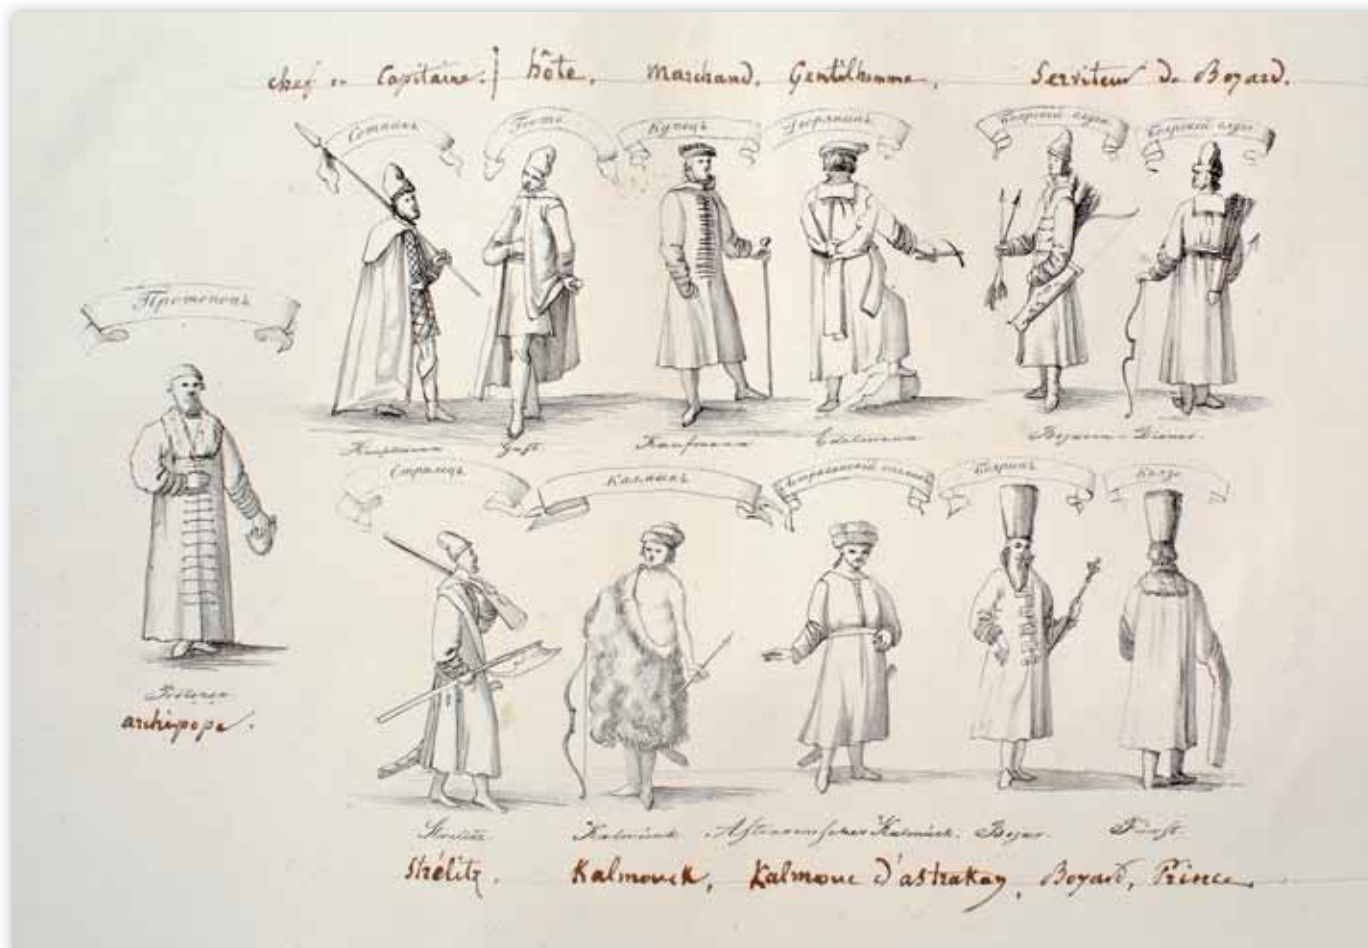 chef ou Capitaine. } hôte, Marchand, Gentilhomme, Serviteur de Boyard.
Сотникъ Гость Купецъ Дворянинъ Боярскій слуга Боярскій слуга
Протопопъ
Hauptmann Gast Kaufmann Edelmann Bojaren-Diener
Стрѣлецъ Калмыкъ Астраханскій калмыкъ Бояринъ Князь
Protopop
archipope.
Strelitz Kalmück Astrachanischer Kalmück. Bojar. Fürst
Strélitz. Kalmouck, Kalmouc d'astrakan, Boyard, Prince